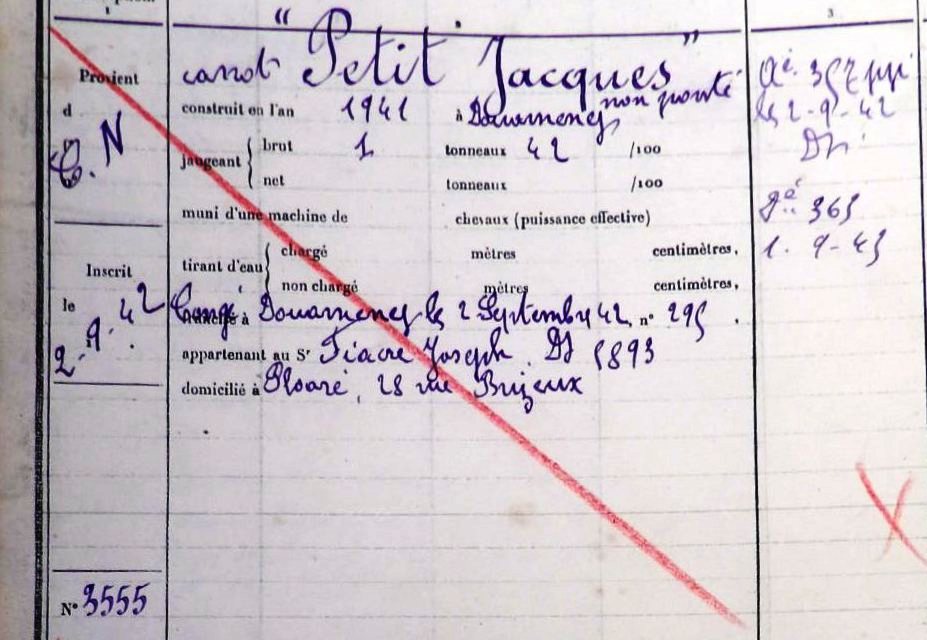 3
Provient
d
C. N
Inscrit
le
2.9.42
N° 3555
canot "Petit Jacques"
non ponté
construit en l'an 1941 à Douarnenez
jaugeant { brut 1 tonneaux 42 /100
net tonneaux /100
muni d'une machine de chevaux (puissance effective)
tirant d'eau { chargé mètres centimètres,
non chargé mètres centimètres,
Congé Douarnenez le 2 Septembre 42, n° 295.
appartenant au Sr Fiacre Joseph. DZ 5893
domicilié à Ploaré, 28 rue Brizeux
le 2-9-42
DZ
363
1. 9-43